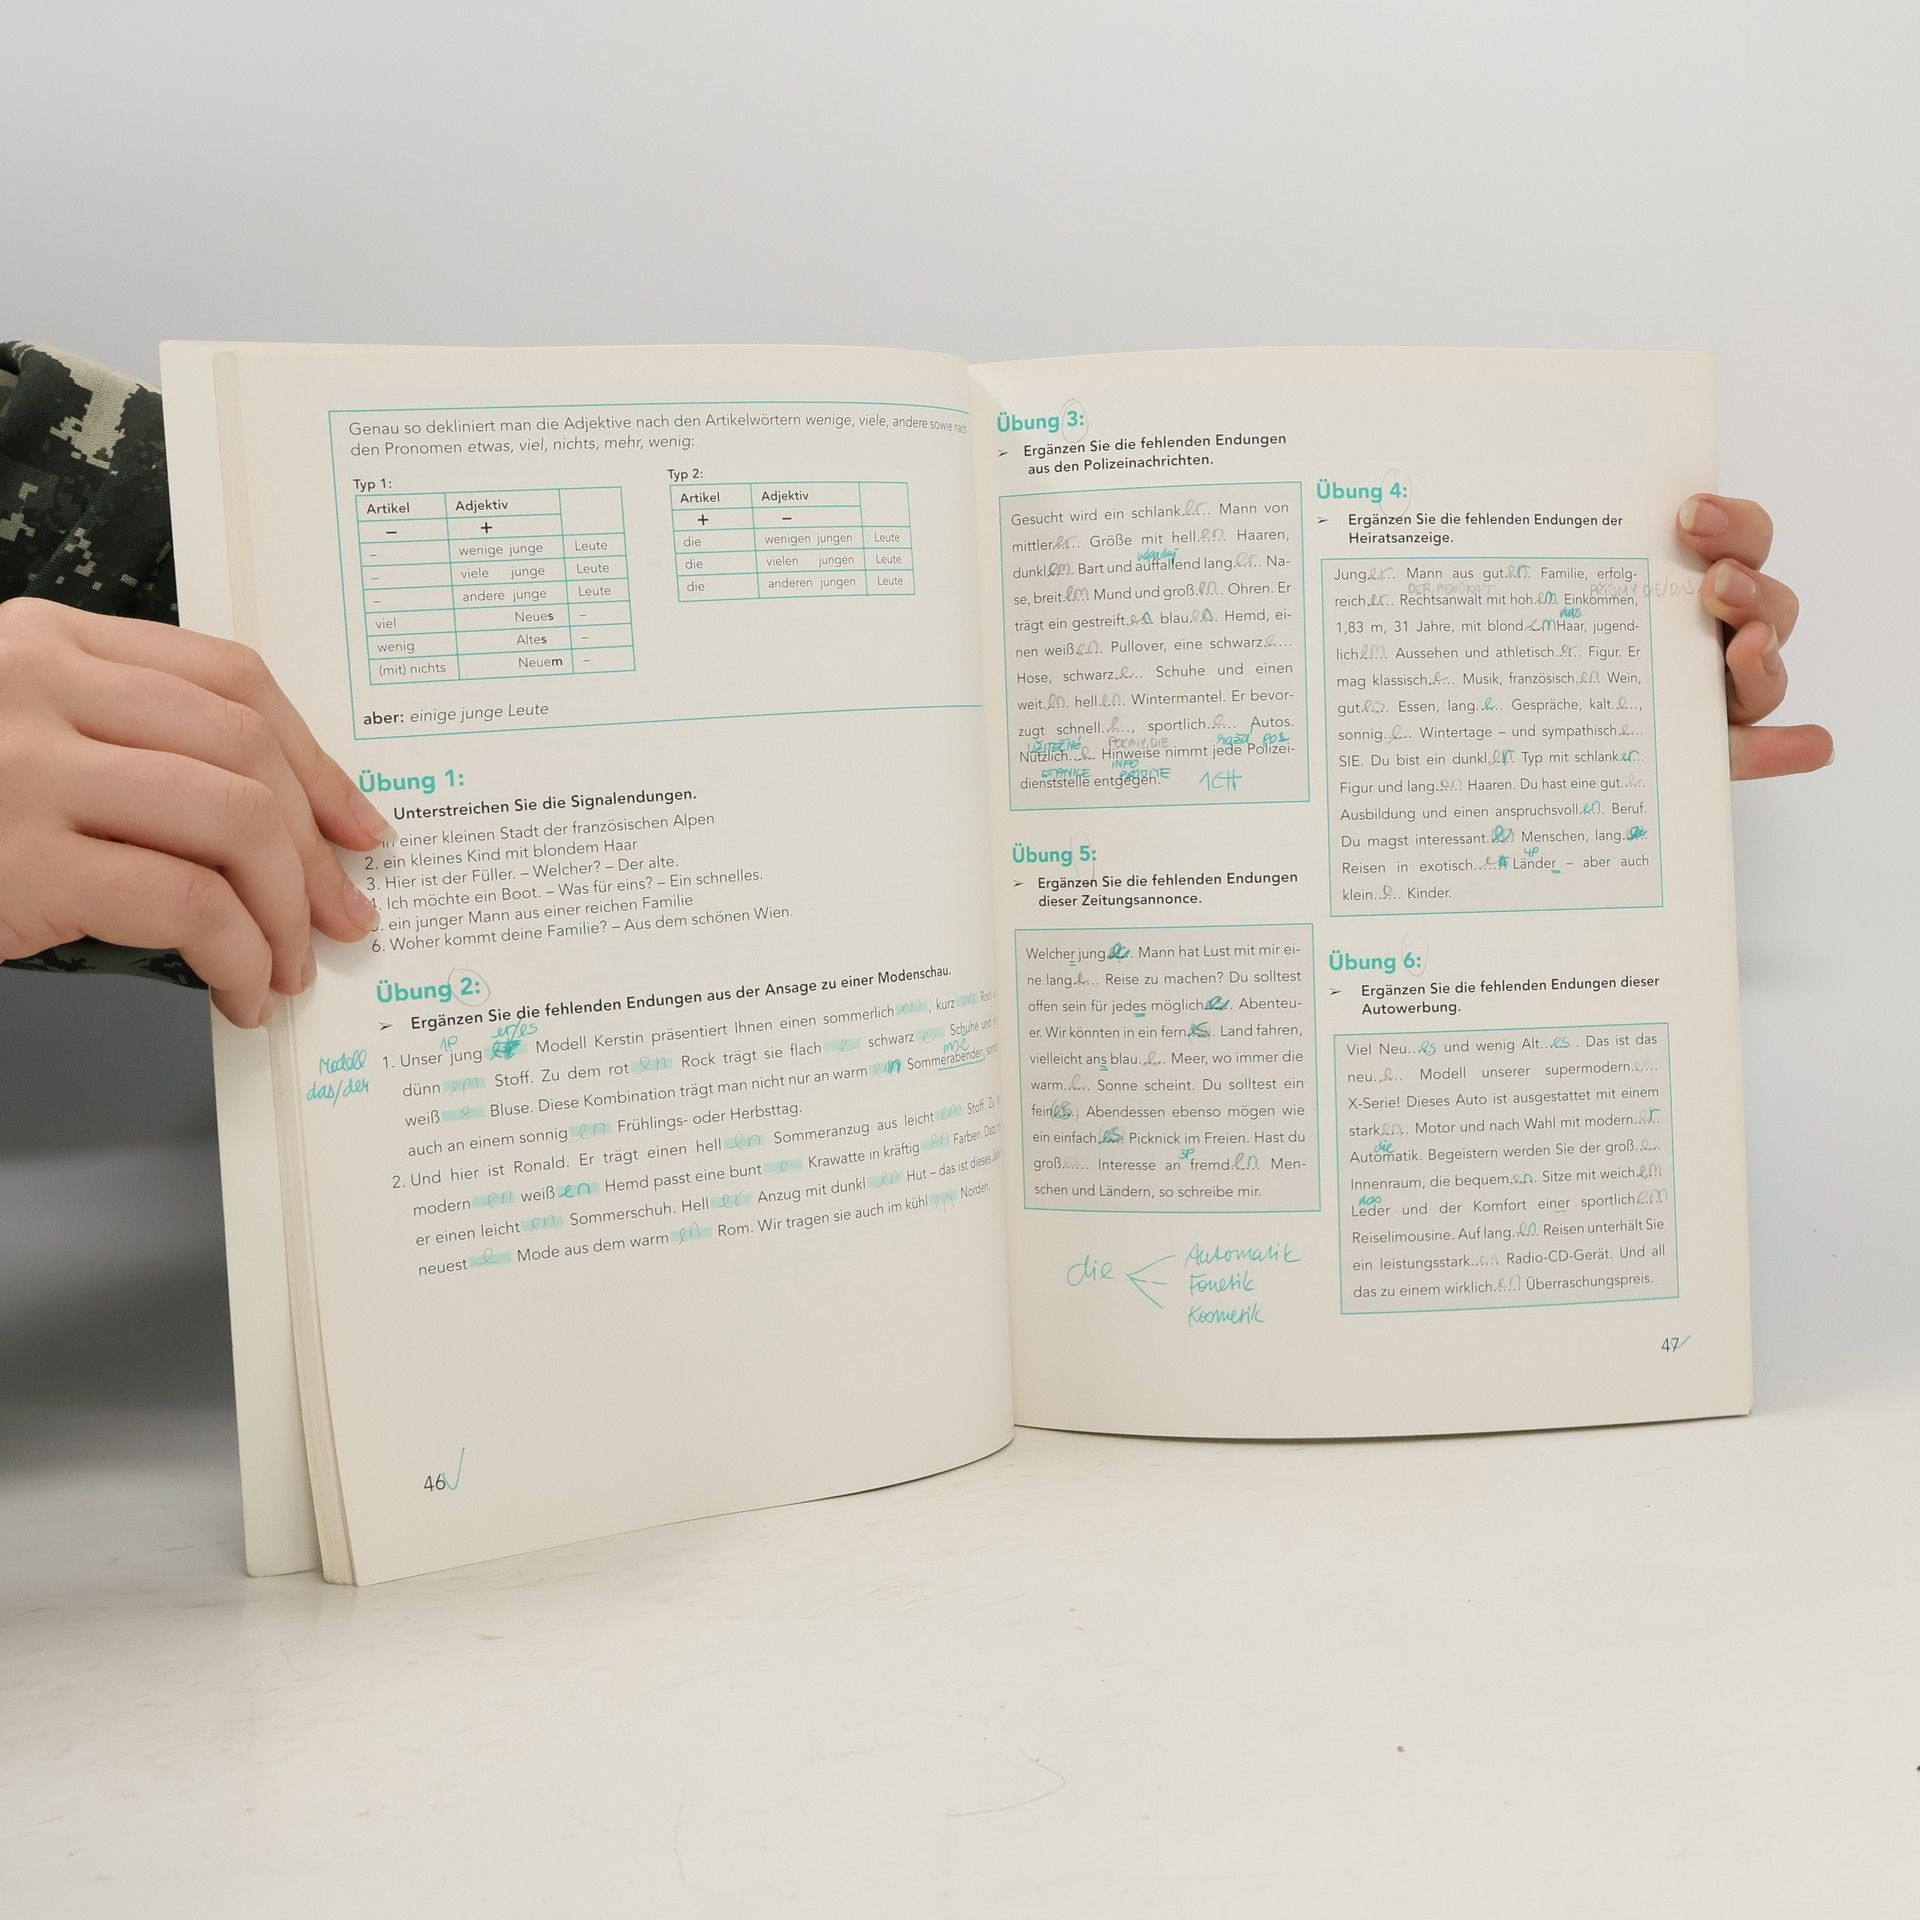 Genau so dekliniert man die Adjektive nach den Artikelwörtern wenige, viele, andere sowie nach
den Pronomen etwas, viel, nichts, mehr, wenig:
Typ 1:
Artikel Adjektiv
– +
– wenige junge Leute
– viele junge Leute
– andere junge Leute
viel Neues –
wenig Altes –
(mit) nichts Neuem –
Typ 2:
Artikel Adjektiv
+ –
die wenigen jungen Leute
die vielen jungen Leute
die anderen jungen Leute
aber: einige junge Leute
Übung 1:
Unterstreichen Sie die Signalendungen.
einer kleinen Stadt der französischen Alpen
2. ein kleines Kind mit blondem Haar
3. Hier ist der Füller. – Welcher? – Der alte.
4. Ich möchte ein Boot. – Was für eins? – Ein schnelles.
ein junger Mann aus einer reichen Familie
6. Woher kommt deine Familie? – Aus dem schönen Wien.
Übung 2:
➢ Ergänzen Sie die fehlenden Endungen aus der Ansage zu einer Modenschau.
1P er/es
Modell
das/der
1. Unser jung Modell Kerstin präsentiert Ihnen einen sommerlich en, kurz en Rock
dünn em Stoff. Zu dem rot en Rock trägt sie flach e schwarz e Schuhe und
weiß e Bluse. Diese Kombination trägt man nicht nur an warm en Sommerabenden,
auch an einem sonnig en Frühlings- oder Herbsttag.
2. Und hier ist Ronald. Er trägt einen hell en Sommeranzug aus leicht em Stoff. Zu
modern en weiß en Hemd passt eine bunt e Krawatte in kräftig en Farben. Dazu
er einen leicht en Sommerschuh. Hell er Anzug mit dunkl em Hut – das ist dieses
neuest e Mode aus dem warm en Rom. Wir tragen sie auch im kühl Norden.
46
Übung 3:
➢ Ergänzen Sie die fehlenden Endungen
aus den Polizeinachrichten.
Gesucht wird ein schlank er Mann von
mittler er Größe mit hell en Haaren,
dunkl em Bart und auffallend lang er Na-
se, breit em Mund und groß en Ohren. Er
trägt ein gestreift en blau en Hemd, ei-
nen weiß en Pullover, eine schwarz e
Hose, schwarz e Schuhe und einen
weit en hell en Wintermantel. Er bevor-
zugt schnell e, sportlich e Autos.
UŽITEČNÉ POKYNY, DIE každ pol.
Nützlich e Hinweise nimmt jede Polizei-
STANICE INFO
dienststelle entgegen.
Übung 4:
➢ Ergänzen Sie die fehlenden Endungen der
Heiratsanzeige.
Jung er Mann aus gut er Familie, erfolg-
DER ADVOKÁT
reich er Rechtsanwalt mit hoh em Einkommen,
das
1,83 m, 31 Jahre, mit blond em Haar, jugend-
lich em Aussehen und athletisch er Figur. Er
mag klassisch e Musik, französisch en Wein,
gut es Essen, lang e Gespräche, kalt e,
sonnig e Wintertage – und sympathisch e
SIE. Du bist ein dunkl er Typ mit schlank er
Figur und lang en Haaren. Du hast eine gut e
Ausbildung und einen anspruchsvoll en Beruf.
Du magst interessant e Menschen, lang e
4P
Reisen in exotisch e Länder – aber auch
klein e Kinder.
Übung 5:
➢ Ergänzen Sie die fehlenden Endungen
dieser Zeitungsannonce.
Welcher jung e Mann hat Lust mit mir ei-
ne lang e Reise zu machen? Du solltest
offen sein für jedes möglich e Abenteu-
er. Wir könnten in ein fern es Land fahren,
vielleicht ans blau e Meer, wo immer die
warm e Sonne scheint. Du solltest ein
fein es Abendessen ebenso mögen wie
ein einfach es Picknick im Freien. Hast du
3P
groß es Interesse an fremd en Men-
schen und Ländern, so schreibe mir.
die Automatik
Fonetik
Kosmetik
Übung 6:
➢ Ergänzen Sie die fehlenden Endungen dieser
Autowerbung.
Viel Neu es und wenig Alt es. Das ist das
neu e Modell unserer supermodern en
X-Serie! Dieses Auto ist ausgestattet mit einem
stark en Motor und nach Wahl mit modern er
die
Automatik. Begeistern werden Sie der groß e
Innenraum, die bequem en Sitze mit weich em
das
Leder und der Komfort einer sportlich em
Reiselimousine. Auf lang en Reisen unterhält Sie
ein leistungsstark es Radio-CD-Gerät. Und all
das zu einem wirklich en Überraschungspreis.
47